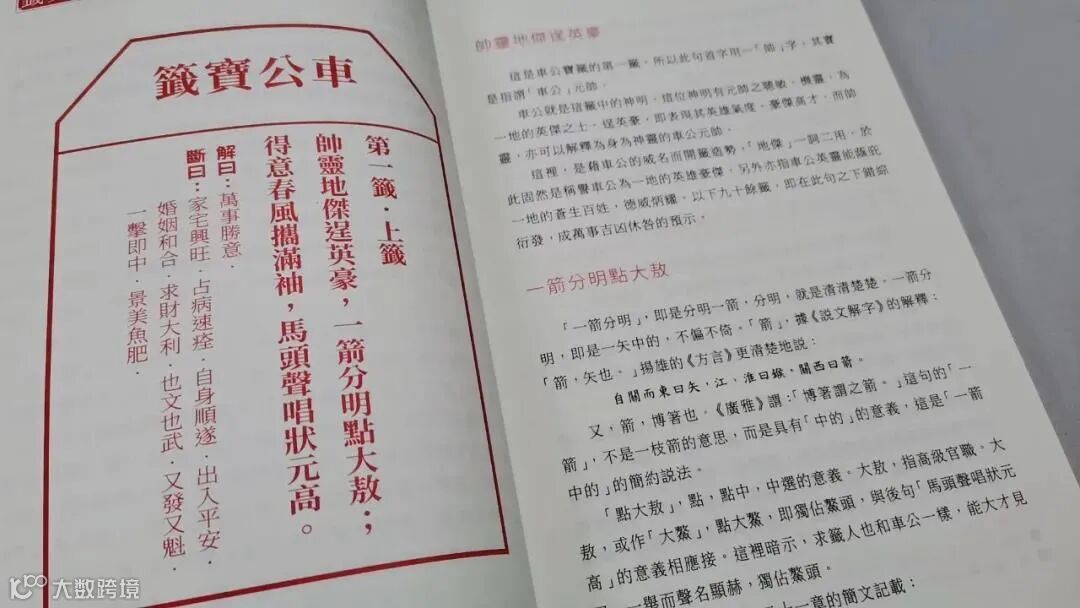 車公寶籤
第一籤．上籤
帥靈地傑逞英豪，一箭分明點大敖；
得意春風攜滿袖，馬頭聲唱狀元高。
解曰：萬事勝意．
斷曰：家宅興旺．占病速痊．自身順遂．出入平安．
婚姻和合．求財大利．也文也武．又發又魁．
一擊即中．景美魚肥．
帥靈地傑逞英豪
這是車公寶籤的第一籤，所以此句首字用一「帥」字，其實
是指謂「車公」元帥。
車公就是這籤中的神明，這位神明有元帥之聰敏、機靈，為
一地的英傑之士。逞英豪，即表現其英雄氣度、豪傑高才，而帥
靈，亦可以解釋為身為神靈的車公元帥。
這裡，是藉車公的威名而開籤造勢，「地傑」一詞二用，於
此固然是稱譽車公為一地的英雄豪傑，另外亦指車公英靈能蔭庇
一地的蒼生百姓，德威炳耀。以下九十餘籤，即在此句之下錯綜
衍發，成萬事吉凶休咎的預示。
一箭分明點大敖
「一箭分明」，即是分明一箭，分明，就是清清楚楚。一箭分
明，即是一矢中的，不偏不倚。「箭」，據《說文解字》的解釋：
「箭，矢也。」揚雄的《方言》更清楚地說：
自關而東曰矢，江、淮曰鍭，關西曰箭。
又，箭，博箸也。《廣雅》謂：「博箸謂之箭。」這句的「一
箭」，不是一枝箭的意思，而是具有「中的」的意義，這是「一箭
中的」的簡約說法。
「點大敖」，點，點中，中選的意義。大敖，指高級官職。大
敖，或作「大鰲」，點大鰲，即獨佔鰲頭，與後句「馬頭聲唱狀元
高」的意義相應接。這裡暗示，求籤人也和車公一樣，能大才見
用，一舉而聲名顯赫，獨佔鰲頭。
上一章的簡文記載：
大数跨境